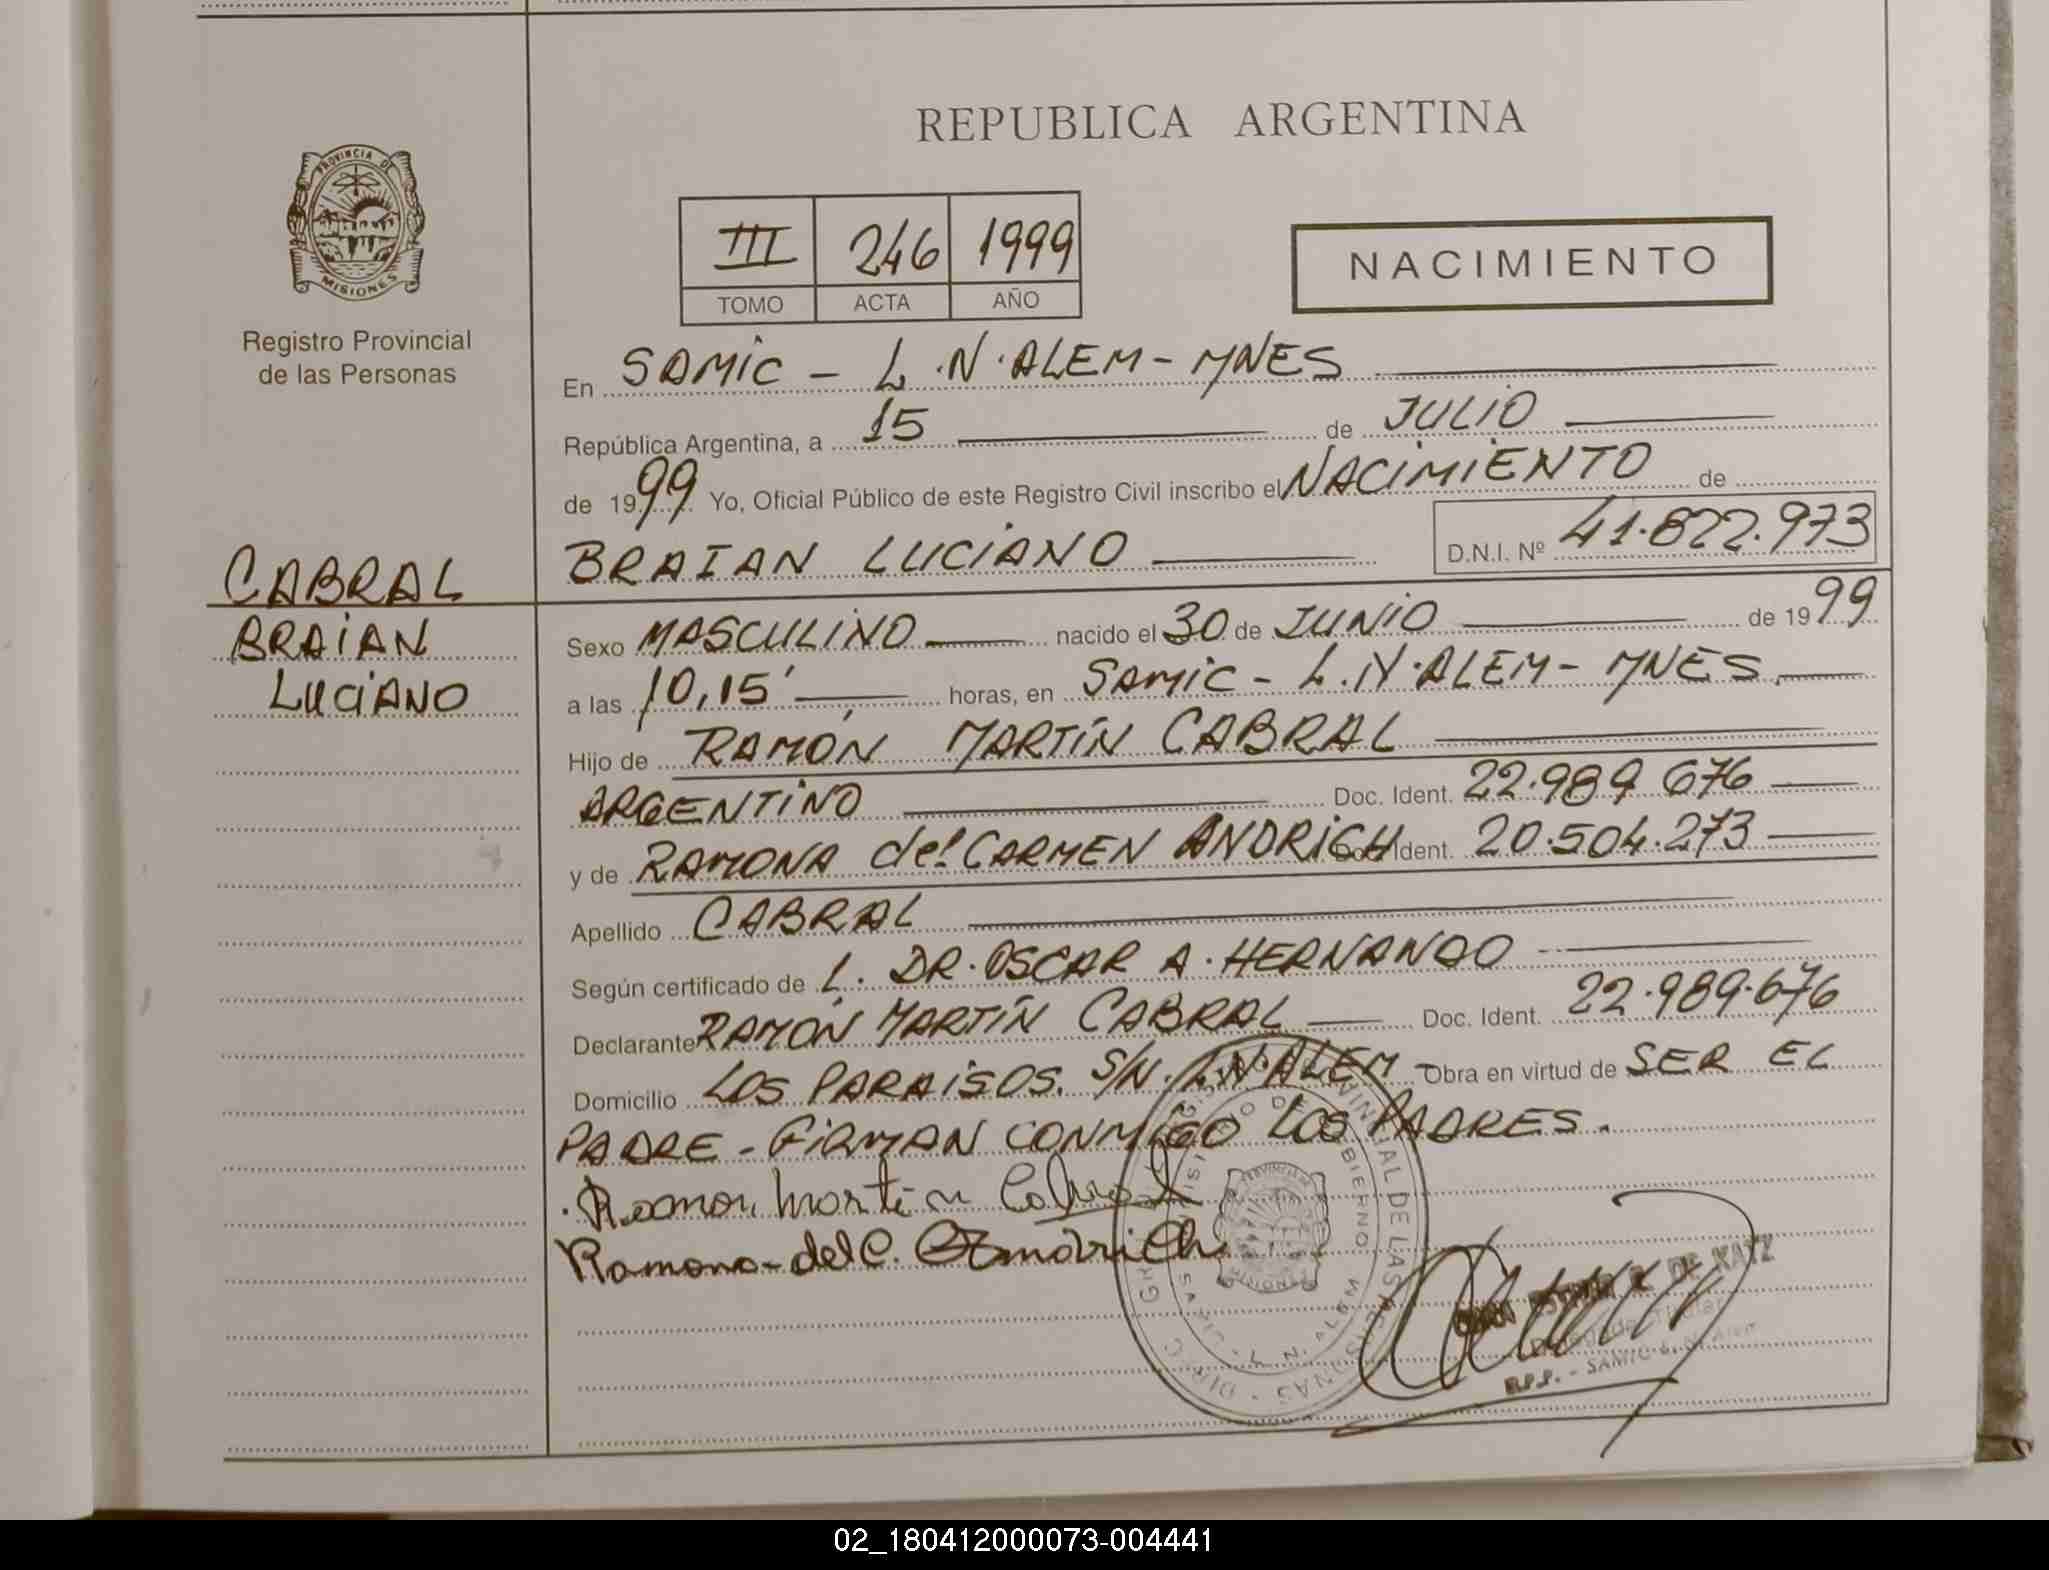 REPUBLICA ARGENTINA
PROVINCIA DE
MISIONES
Registro Provincial
de las Personas
III 246 1999
TOMO ACTA AÑO
NACIMIENTO
En SAMIC - L.N.ALEM - MNES
República Argentina, a 15 de JULIO
de 1999 Yo, Oficial Público de este Registro Civil inscribo el NACIMIENTO de
BRAIAN LUCIANO D.N.I. Nº 41.822.973
CABRAL
BRAIAN
LUCIANO
Sexo MASCULINO nacido el 30 de JUNIO de 1999
a las 10,15' horas, en SAMIC - L.N.ALEM - MNES
Hijo de RAMÓN MARTÍN CABRAL
ARGENTINO Doc. Ident. 22.989 676
y de RAMONA del CARMEN ANDRICH Doc. Ident. 20.504.273
Apellido CABRAL
Según certificado de L. DR. OSCAR A. HERNANDO
Declarante RAMÓN MARTÍN CABRAL Doc. Ident. 22.989.676
Domicilio LOS PARAISOS. S/N. L.N.ALEM - Obra en virtud de SER EL
PADRE - FIRMAN CONMIGO LOS PADRES.
Ramon Martin Cabral
Ramona del C. Andrich
DE KATZ
Delegada Titular
R.P.P. - SAMIC L. N. Alem
02_180412000073-004441